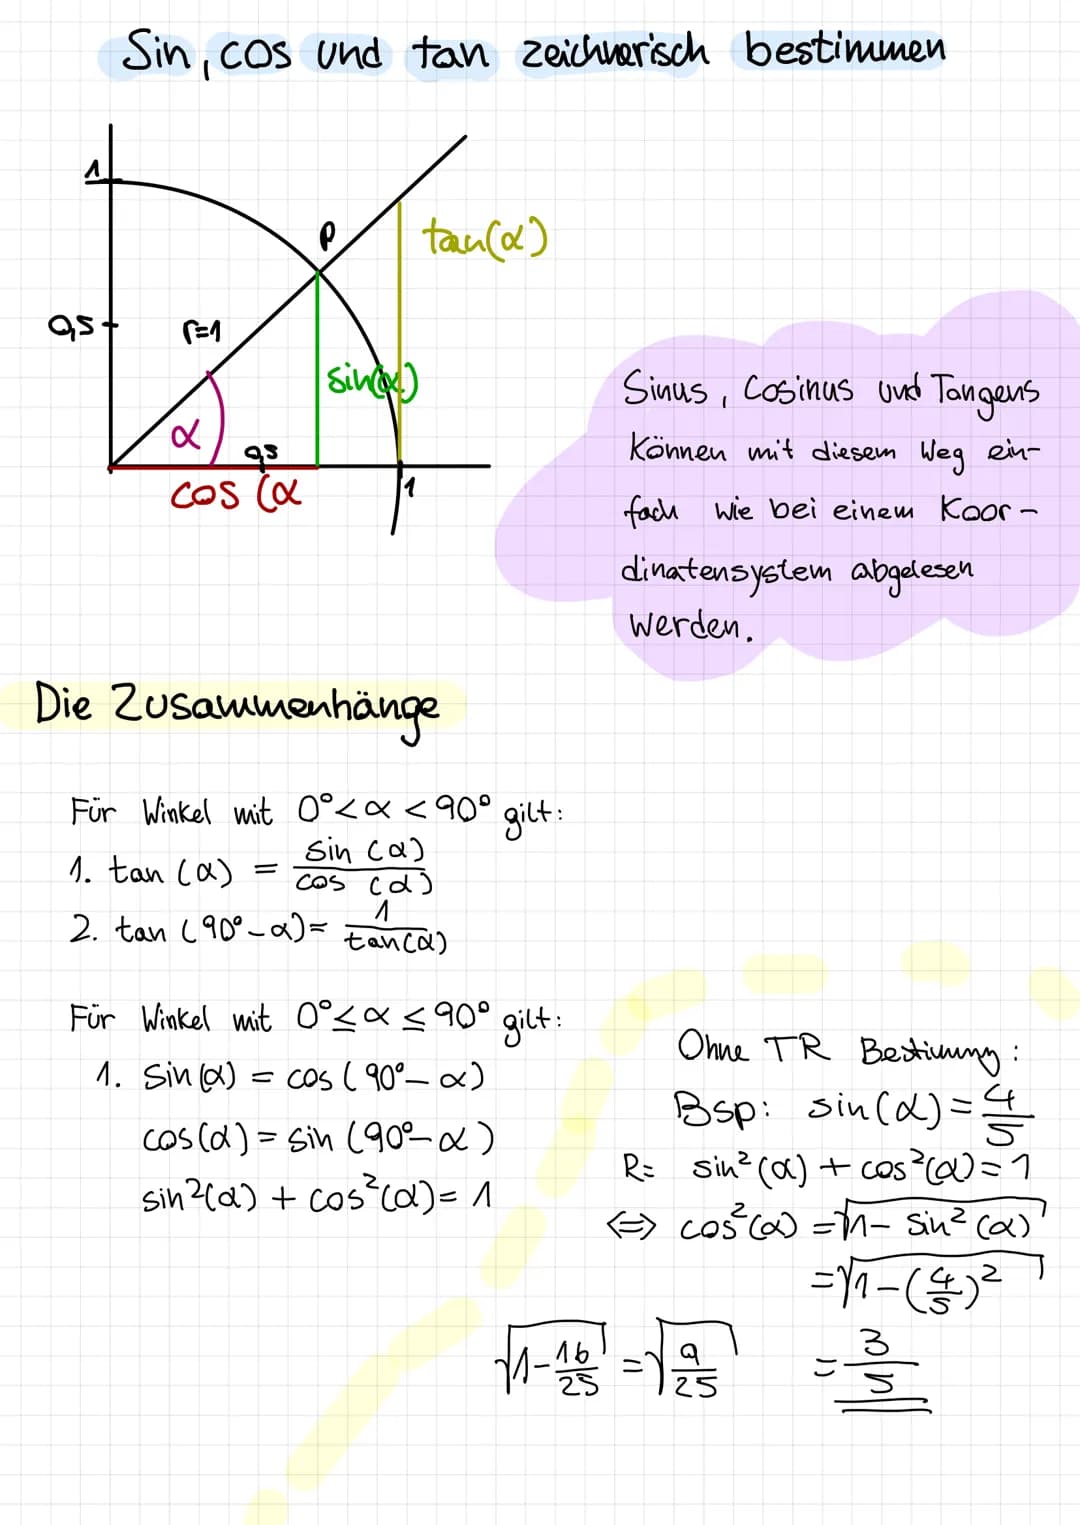 Sin, cos und tan zeichnerisch bestimmen
1
P
tan(α)
0,5
r=1
sin(α)
α
0,5
cos (α
1
Sinus, Cosinus und Tangens
Können mit diesem Weg ein-
fach wie bei einem Koor-
dinatensystem abgelesen
werden.
Die Zusammenhänge
Für Winkel mit 0°<α<90° gilt:
1. tan (α) = sin (α) / cos (α)
2. tan (90°-α) = 1 / tan(α)
Für Winkel mit 0°≤α≤90° gilt:
1. Sin(α) = cos (90°-α)
cos(α) = sin (90°-α)
sin²(α) + cos²(α) = 1
Ohne TR Bestimmung:
Bsp: sin(α) = 4/5
R= sin²(α) + cos²(α) = 1
⇔ cos²(α) = √1 - sin²(α)
= √1-(4/5)²
√1-16/25 = √9/25 = 3/5